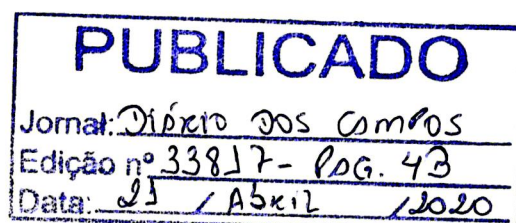 PUBLICADO
Jornal: Diário dos Campos
Edição nº 33817 - PÁG. 4B
Data: 21 / Abril / 2020